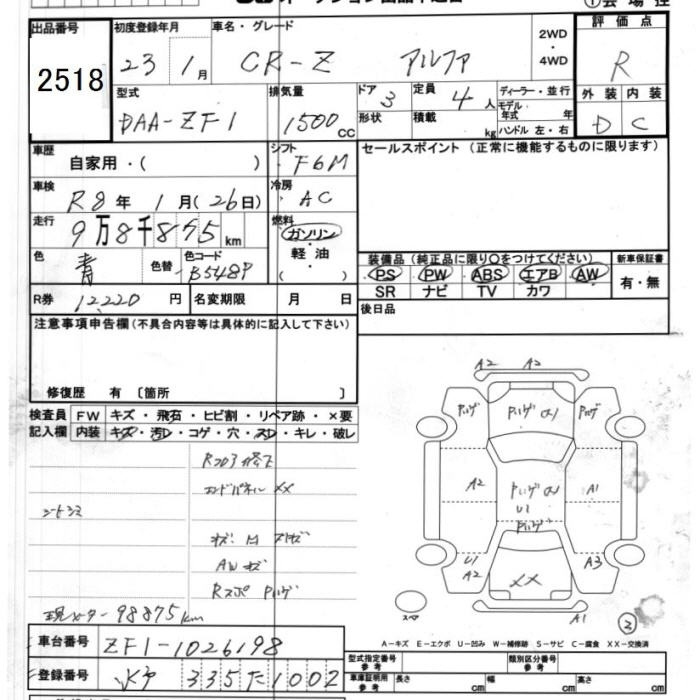 出品番号
2518
初度登録年月
23 1月
車名・グレード
CR-Z アルファ
2WD
・
4WD
評価点
R
外装 内装
D C
型式
DAA-ZF1
排気量
1500cc
ドア
3
定員
4人
形状
積載
kg
ディーラー・並行
モデル年式 年
ハンドル 左・右
車歴
自家用・( )
シフト
F6M
セールスポイント(正常に機能するものに限ります)
車検
R8年 1月(26日)
冷房
AC
走行
9万8千875km
燃料
ガソリン
・
軽油
( )
色
青
色替
色コード
B548P
装備品(純正品に限り○をつけてください)
PS PW ABS エアB AW
SR ナビ TV カワ
新車保証書
有・無
R券 12,220円
名変期限 月 日
後日品
注意事項申告欄(不具合内容等は具体的に記入して下さい)
修復歴 有〔箇所 〕
検査員記入欄
FW キズ・飛石・ヒビ割・リペア跡・×要
内装 キズ・汚レ・コゲ・穴・スレ・キレ・破レ
エンドパネル XX
AWキズ
現メーター98875km
A2 A2
A2
A1
U1
U1
A2
A3
XX
A1
スペア
3
A-キズ E-エクボ U-凹み W-補修跡 S-サビ C-腐食 XX-交換済
車台番号 ZF1-1026198
登録番号 335 た 1002
型式指定番号
参考
類別区分番号
参考
車庫証明用
参考
長さ cm 幅 cm 高さ cm